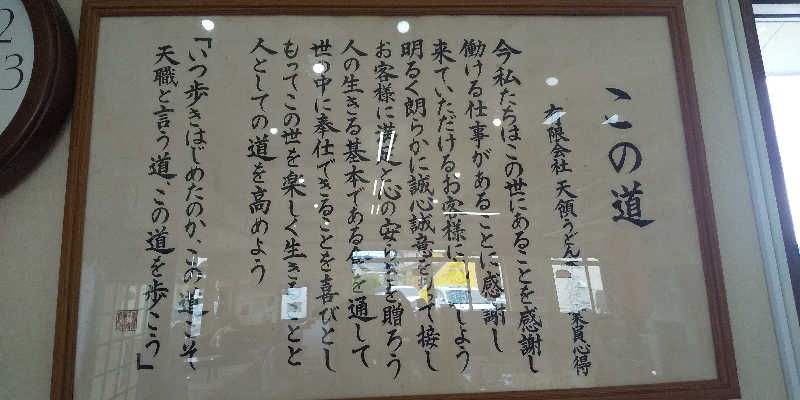 この道
有限会社 天領うどん 業員心得
今私たちはこの世にあることを感謝し
働ける仕事があることに感謝し
来ていただけるお客様に しよう
明るく朗らかに誠心誠意をもって接し
お客様に満足と心の安らぎを贈ろう
人の生きる基本である食を通して
世の中に奉仕できることを喜びとし
もってこの世を楽しく生きることと
人としての道を高めよう
「いつ歩きはじめたのか、この道こそ
天職と言う道、この道を歩こう」
2
3